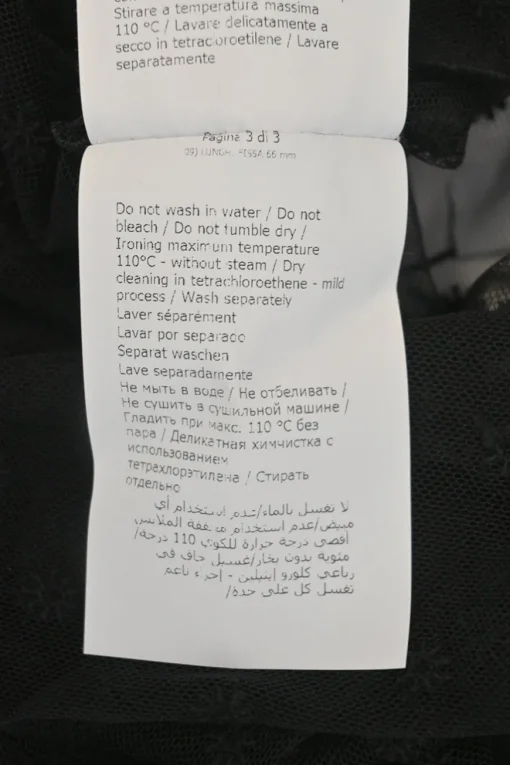 Stirare a temperatura massima
110 °C / Lavare delicatamente a
secco in tetracloroetilene / Lavare
separatamente
Pagina 3 di 3
09) LUNGH. FISSA 66 mm
Do not wash in water / Do not
bleach / Do not tumble dry /
Ironing maximum temperature
110°C - without steam / Dry
cleaning in tetrachloroethene - mild
process / Wash separately
Laver séparément
Lavar por separado
Separat waschen
Lave separadamente
Не мыть в воде / Не отбеливать /
Не сушить в сушильной машине /
Гладить при макс. 110 °C без
пара / Деликатная химчистка с
использованием
тетрахлорэтилена / Стирать
отдельно
لا تغسل بالماء/عدم استخدام أي
مبيض/عدم استخدام مجففة الملابس
أقصى درجة حرارة للكوي 110 درجة/
مئوية بدون بخار/غسيل جاف في
رباعي كلورو إيثيلين - إجراء ناعم
تغسل كل على حدة/